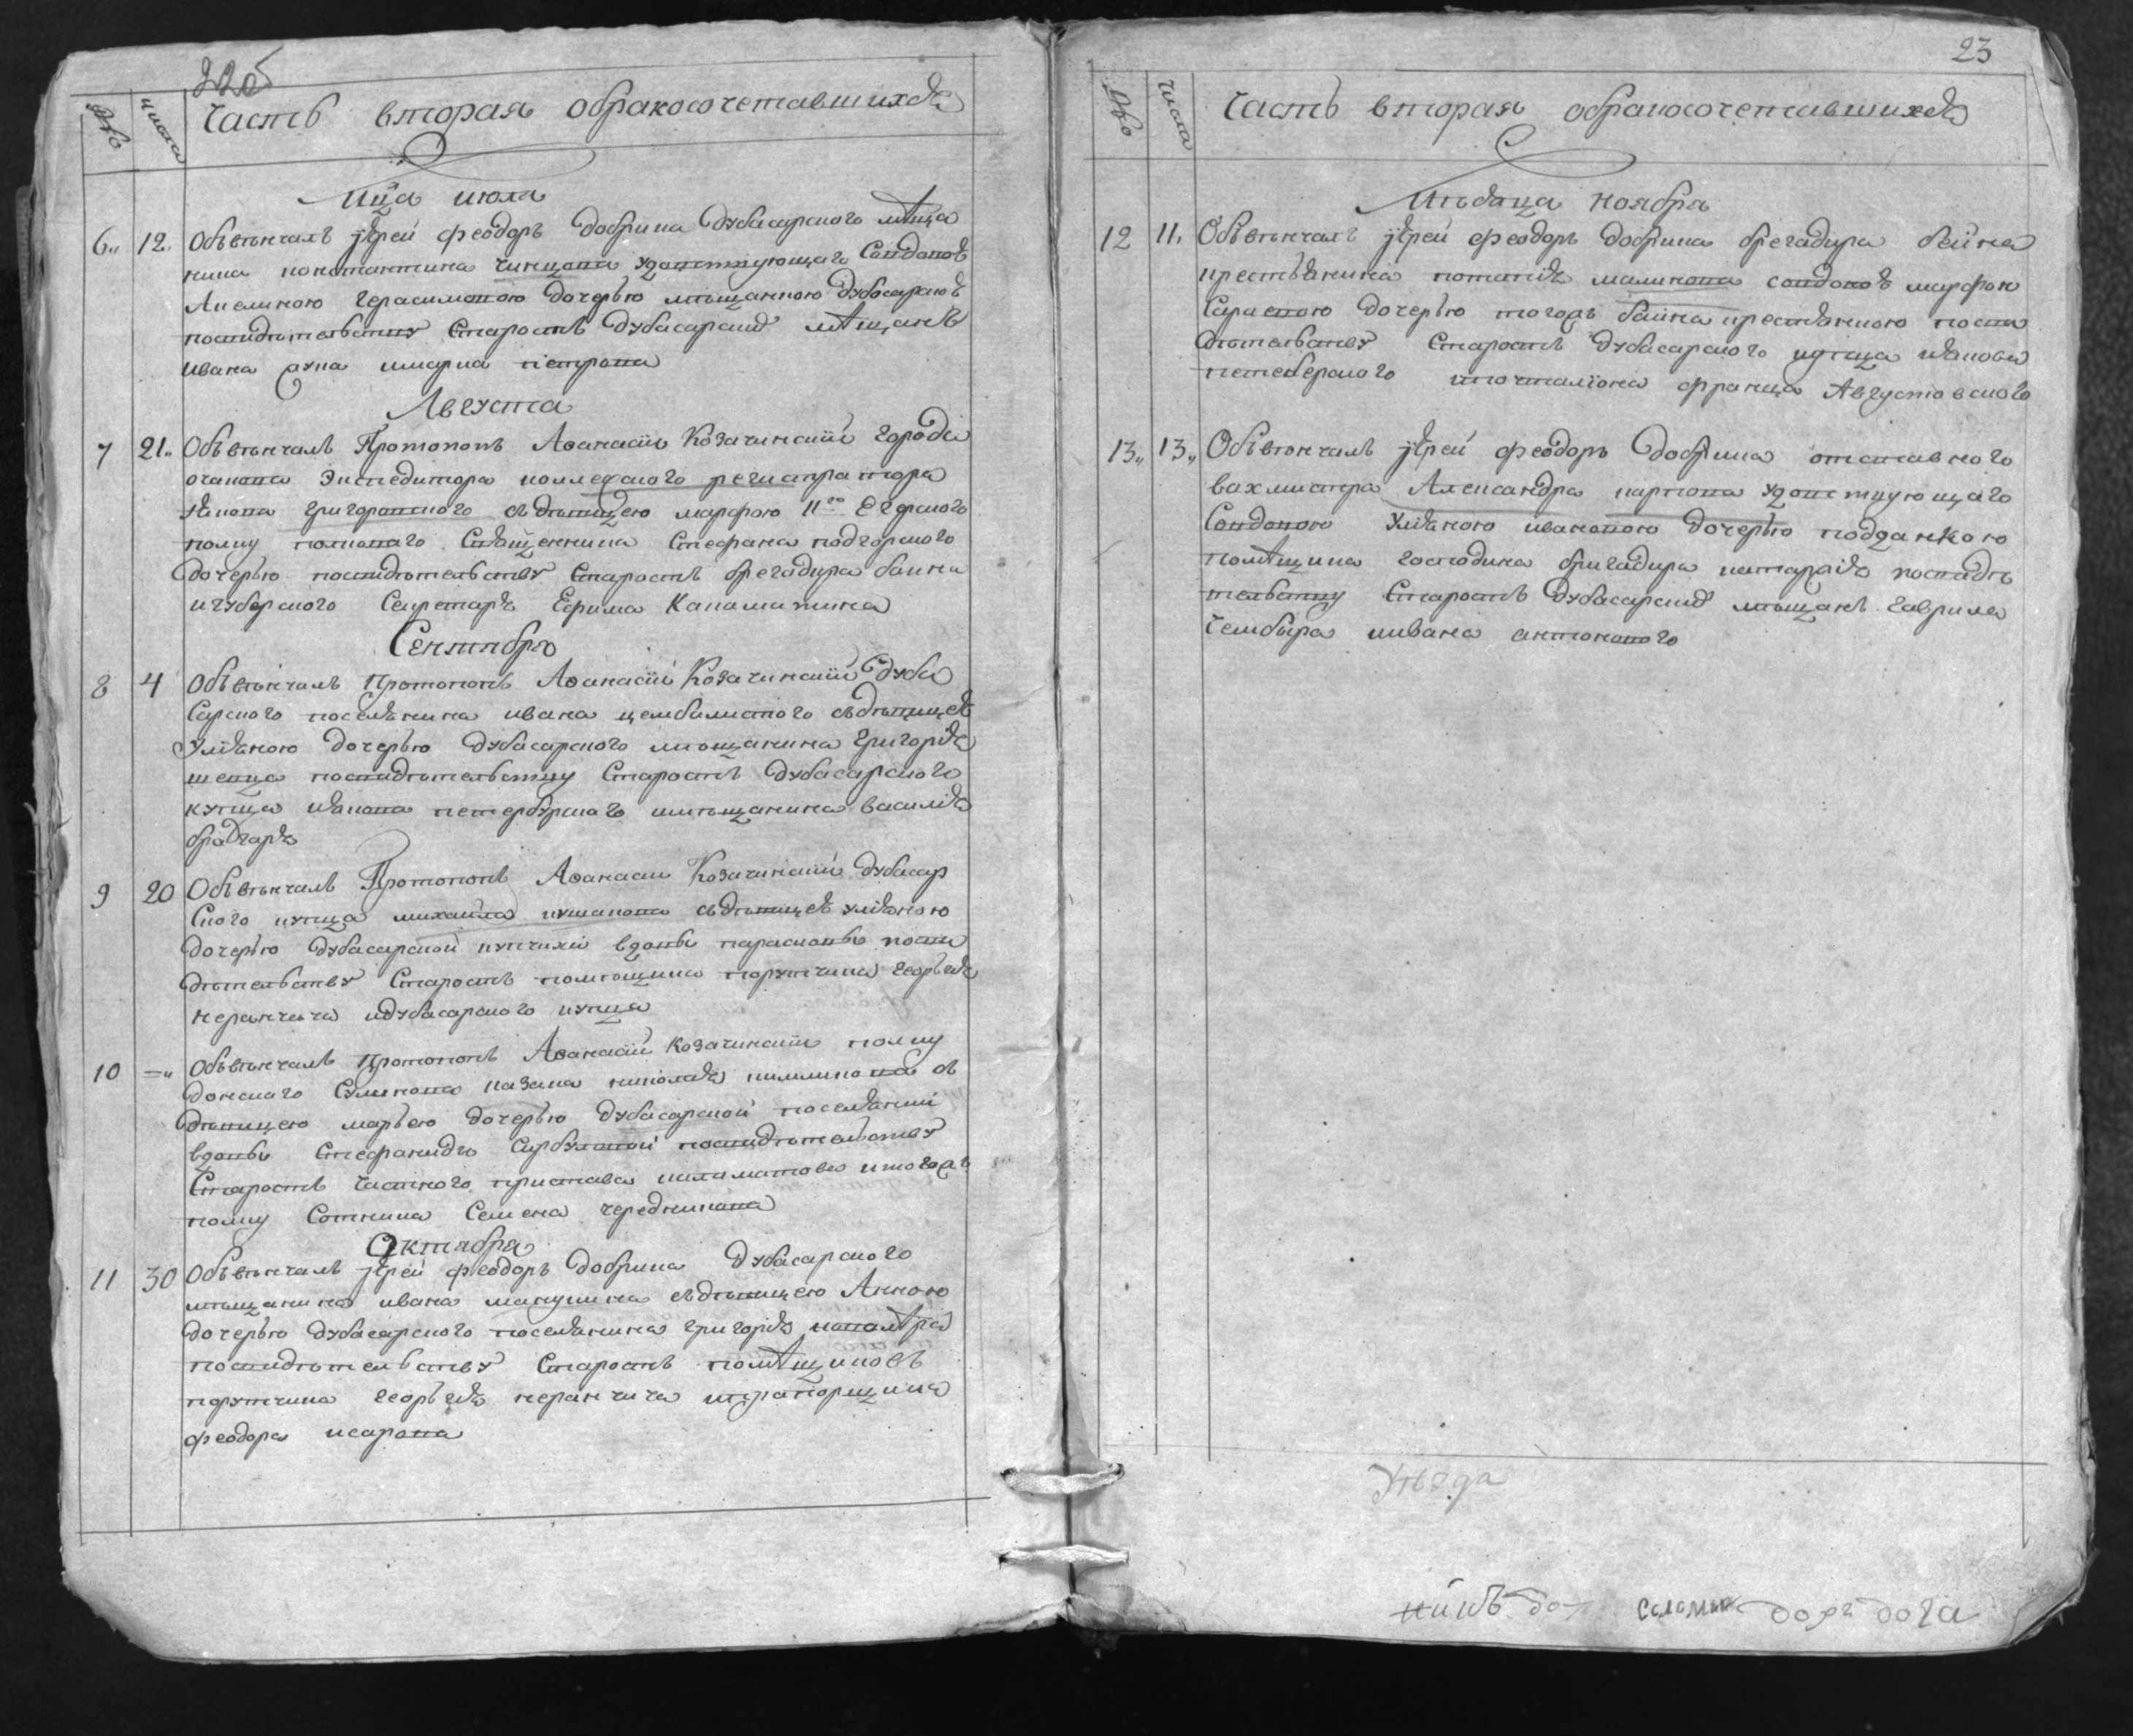 22об
Число
Часть вторая обракосочетавшихся
Мца июля
6. 12. Обвенчалъ іерей феодоръ добрина дубасарского мѣща
нина константина удовствующаго Сowдовою
Анелиною Герасимовою дочерью мѣщанкою дубосарскою
посвидѣтелству Старостъ дубасарскихъ мѣщанъ
ивана имарка петрова
Августа
7 21. Обвѣнчалъ Протопопъ Аѳанасій Козачинский города
очакова Экспедитора коллежского регистратора
якова григоровского сдѣвицею марфою 11го Егерского
полку полковаго Священника Стефана подгорского
дочерью посвидѣтельству Старостъ брегадира баина
игуберского Секретаря Ефима Каламатина
Сентября
8 4 Обвѣнчалъ Протопопъ Аѳанасій Козачинский дуба
сарского поселянина ивана цембалистого сдѣвицею
Уліяною дочерью дубасарского мѣщанина григорія
шевца посвидѣтельству Старостъ дубасарского
купца якова петербурского имѣщанина василія
браднаря
9 20 Обвѣнчалъ Протопопъ Аѳанасий Козачинский дубасар
ского купца михаила кушакова сдѣвицею уліяною
дочерью дубасарской купчихи вдовы парасковы посви
дѣтельству Старостъ помѣщика порутчика георгия
неранчича идубасарского купца
10 =„ Обвѣнчалъ Протопопъ Аѳанасій Козачинский полку
донскаго Сулинова казака николая с
дѣвицею марьею дочерью дубасарской поселянки
вдовы Стефаниды Сербуловой посвидѣтельству
Старостъ Частного пристава каламатова итогожъ
полку Сотника Семена чередникова
Октября
11 30 Обвѣнчалъ іерей феодоръ добрина дубасарского
мѣщанина ивана сдѣвицею Анною
дочерью дубасарского поселянина григорія
посвидѣтельству Старостъ помѣщиковъ
порутчика георгия неранчича ипрапорщика
феодора
23
Число
Часть вторая обракосочетавшихся
Мѣсяца ноября
12 11. Обвѣнчалъ іерей феодоръ добрина брегадира баина
крестьянина потапія маликова совдовою марфою
Сараевою дочерью тогожъ баина крестянкою посви
дѣтельству Старостъ дубасарского купца якова
петеберского ипочталіона франца Августовского
13„ 13„ Обвѣнчалъ іерей феодоръ добрина отставного
вахмистра Александра карпова удовствующаго
Совдовою Уліяною ивановою дочерью подданкою
помѣщика господина бригадира катаржія посвидѣ
тельству Старостъ дубасарскихъ мѣщанъ гаврила
чембыра иивана антонового
Уѣзда